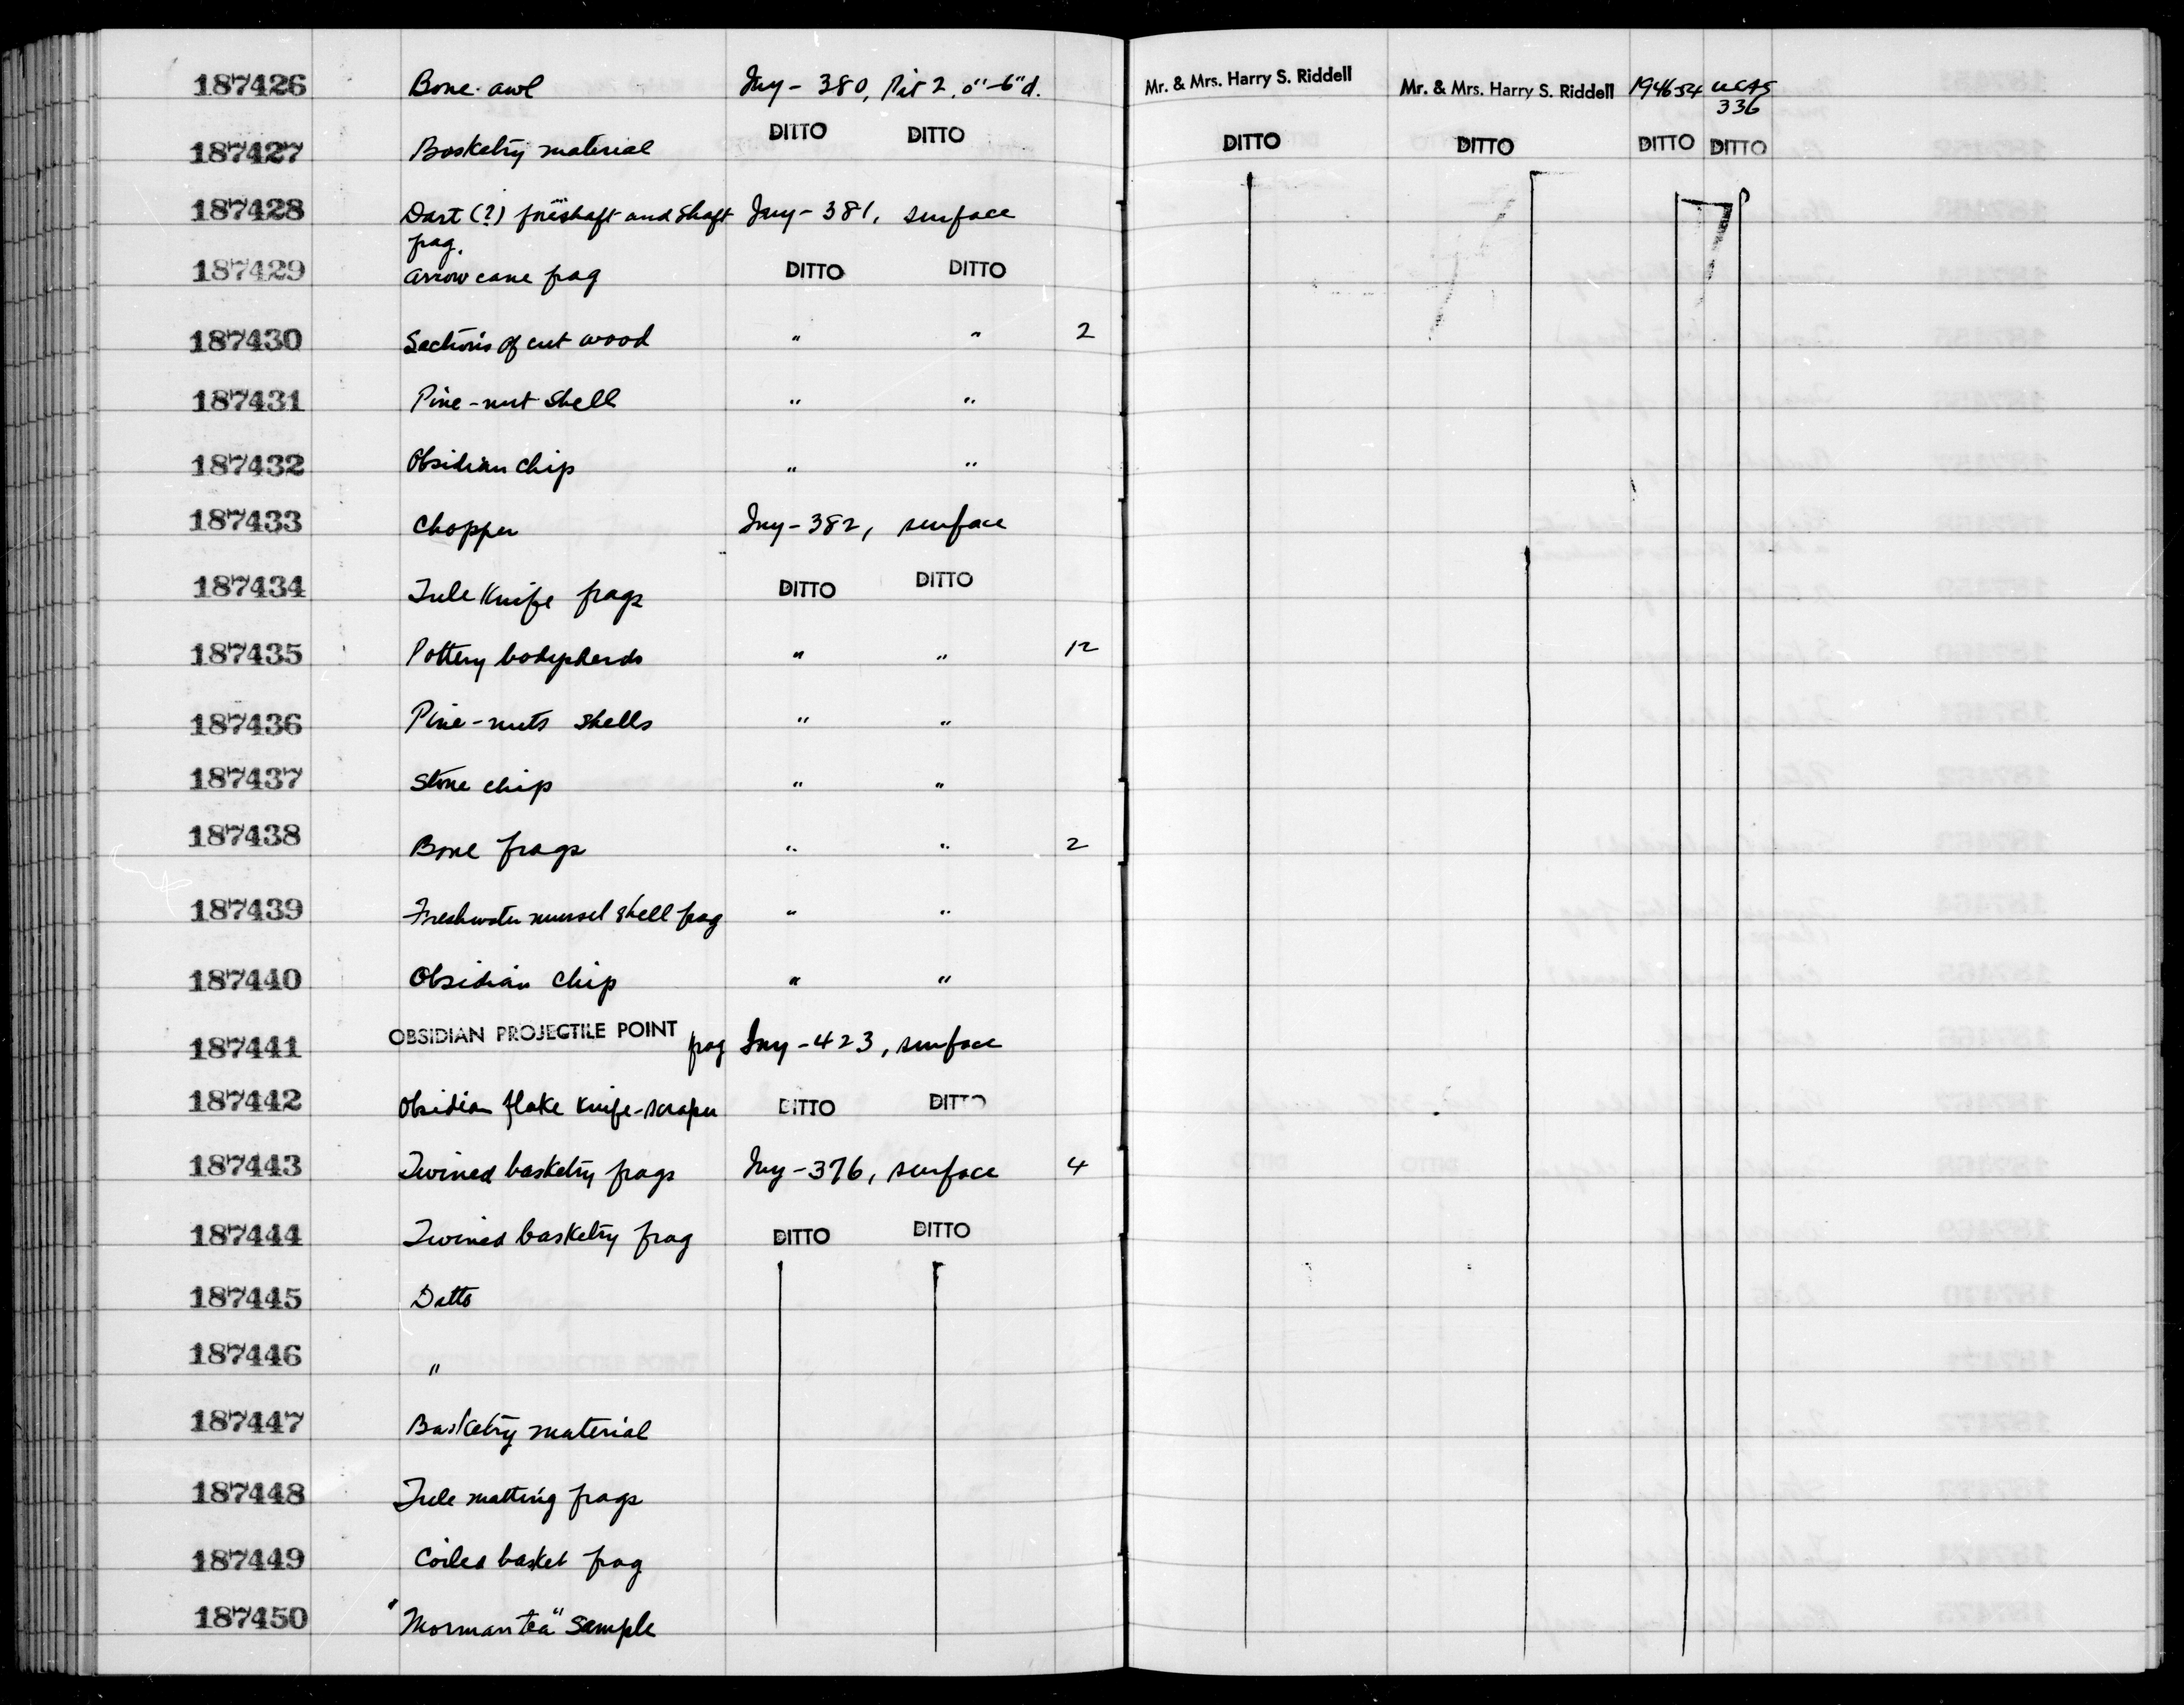 187426 Bone awl Iny-380, Pit 2, 0"-6"d. Mr. & Mrs. Harry S. Riddell Mr. & Mrs. Harry S. Riddell 1946-54 UCAS
336
187427 Basketry material DITTO DITTO DITTO DITTO DITTO DITTO
187428 Dart (?) foreshaft and shaft Iny-381, surface
frag.
187429 Arrow cane frag DITTO DITTO
187430 Sections of cut wood " " 2
187431 Pine-nut shell " "
187432 Obsidian chip " "
187433 Chopper Iny-382, surface
187434 Tule Knife frags DITTO DITTO
187435 Pottery bodysherds " " 12
187436 Pine-nuts shells " "
187437 Stone chip " "
187438 Bone frags " " 2
187439 Freshwater mussel shell frag " "
187440 Obsidian chip " "
187441 OBSIDIAN PROJECTILE POINT frag Iny-423, surface
187442 Obsidian flake knife-scraper DITTO DITTO
187443 Twined basketry frags Iny-376, surface 4
187444 Twined basketry frag DITTO DITTO
187445 Ditto
187446 "
187447 Basketry material
187448 Tule matting frags
187449 Coiled basket frag
187450 "Morman tea" Sample